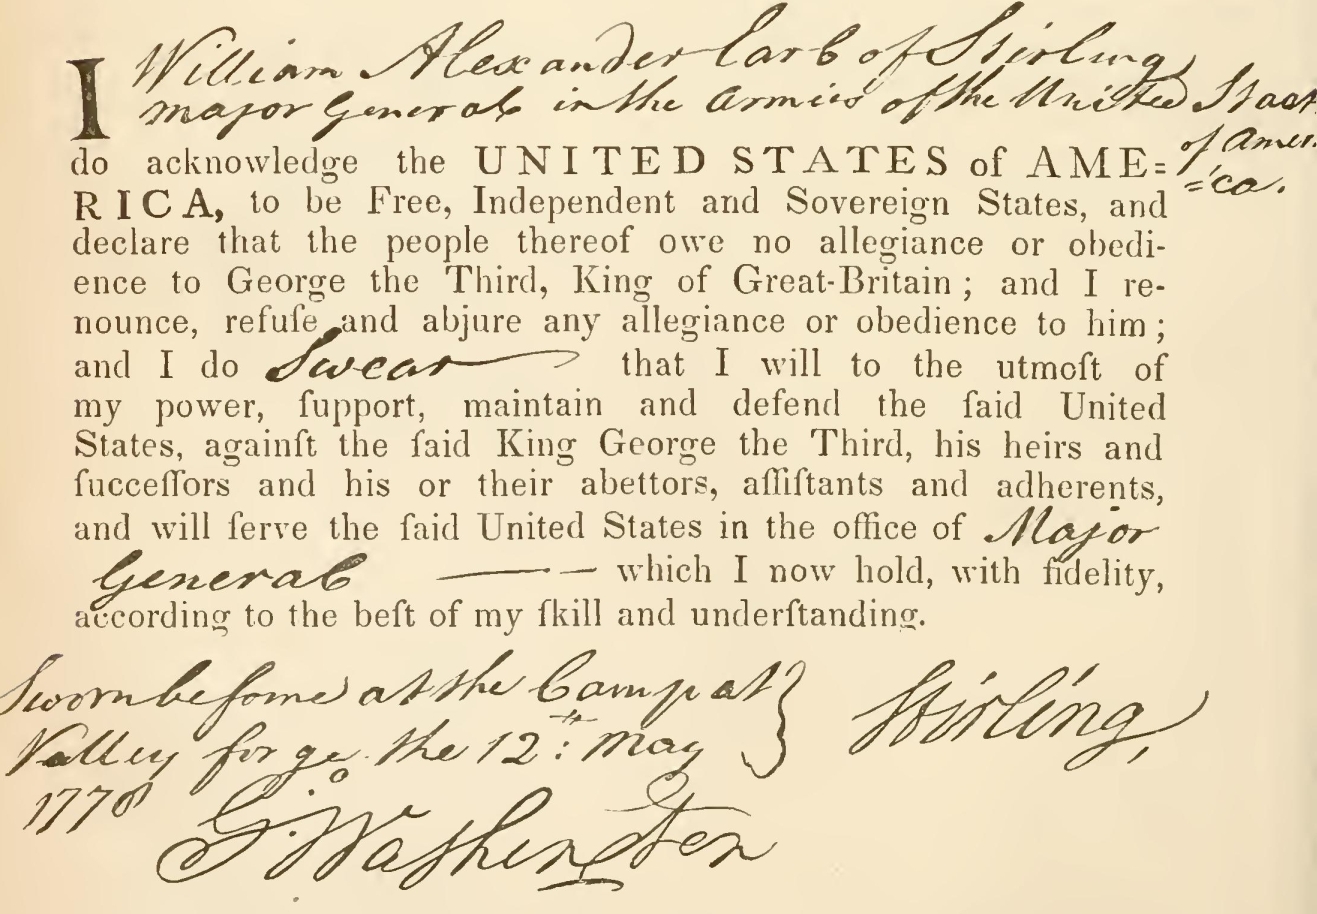 I William Alexander Earl of Stirling
major General in the Armies of the United Staat
of Amer.
=ica.
do acknowledge the UNITED STATES of AME=
RICA, to be Free, Independent and Sovereign States, and
declare that the people thereof owe no allegiance or obedi-
ence to George the Third, King of Great-Britain; and I re-
nounce, refuſe and abjure any allegiance or obedience to him;
and I do Swear that I will to the utmoſt of
my power, ſupport, maintain and defend the ſaid United
States, againſt the ſaid King George the Third, his heirs and
ſucceſſors and his or their abettors, aſſiſtants and adherents,
and will ſerve the ſaid United States in the office of Major
General —— which I now hold, with fidelity,
according to the beſt of my ſkill and underſtanding.
Sworn before me at the Camp at
Valley forge the 12th: May
1778
Stirling,
Go: Washington